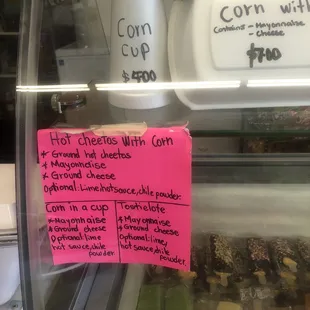 Corn
cup
$4.00
Corn with
Contains - Mayonnaise
- Cheese
$7.00
Hot cheetos with Corn
* Ground hot cheetos
* Mayonnaise
* Ground cheese
Optional: Lime, hot sauce, chile powder.
Corn in a cup
* Mayonnaise
* Ground cheese
Optional: lime
hot sauce, chile
powder
Tostielote
* Mayonnaise
* Ground cheese
Optional: lime,
hot sauce, chile
powder.